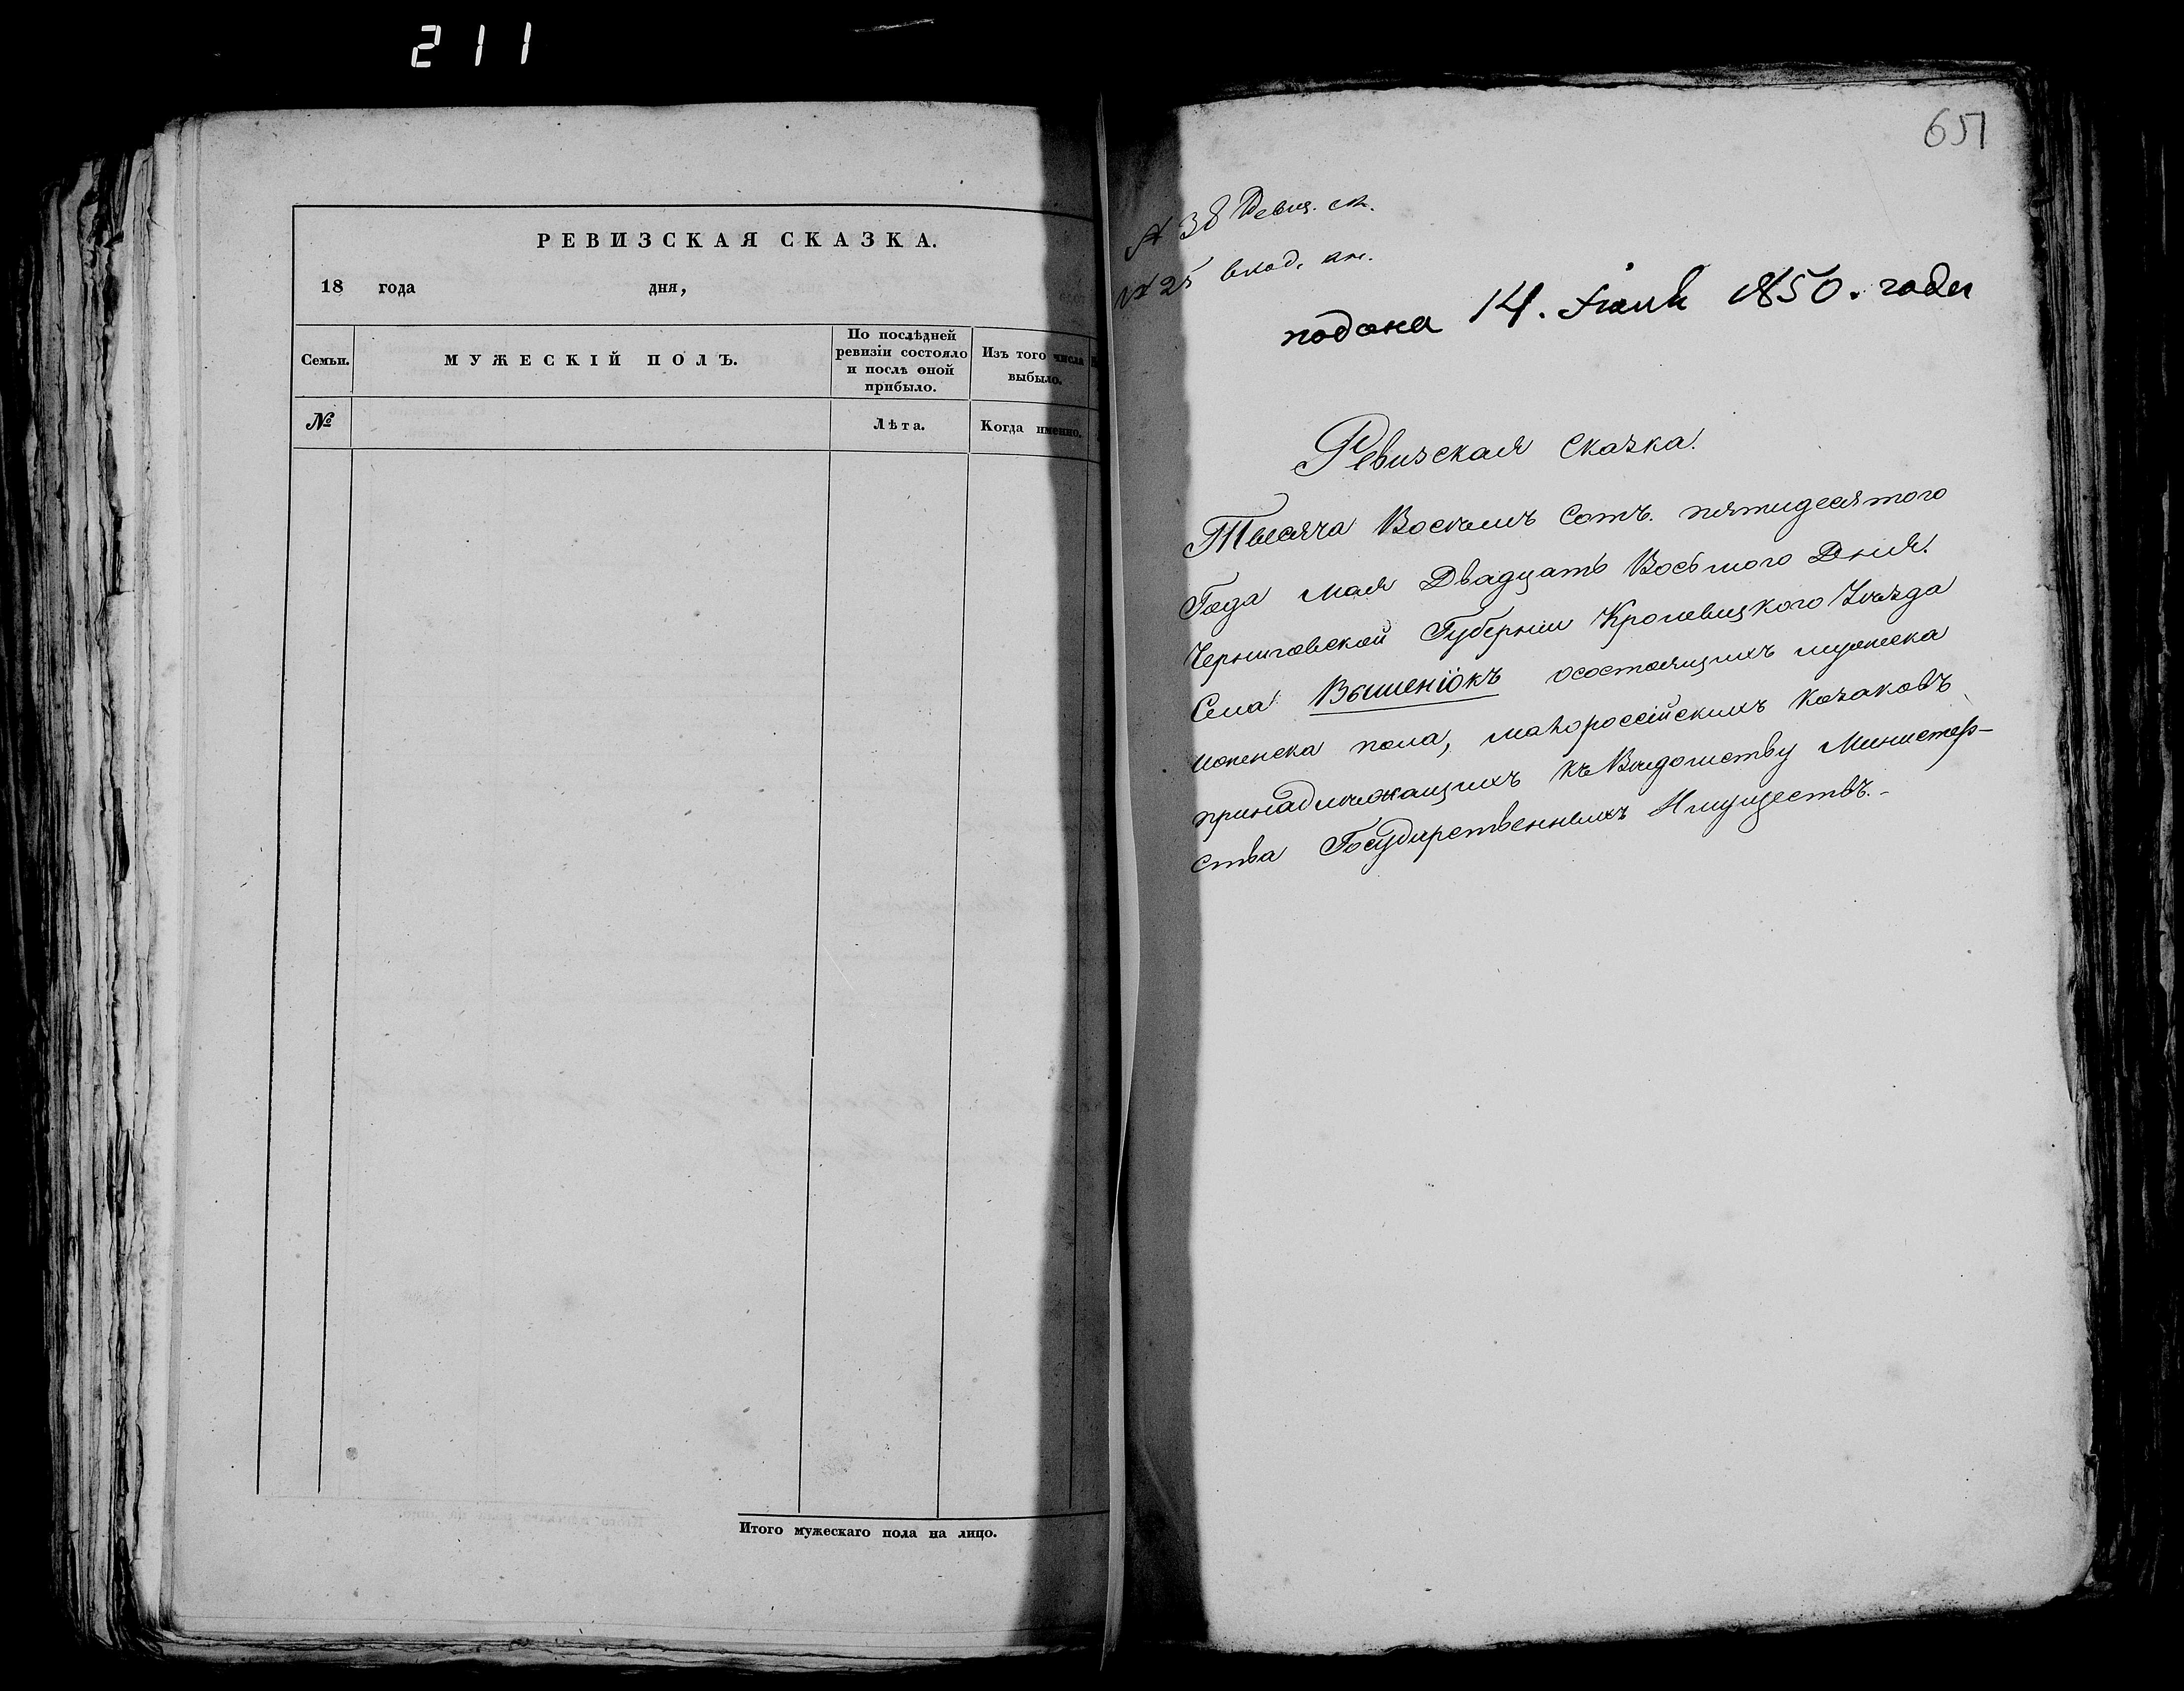 211
РЕВИЗСКАЯ СКАЗКА.
18 года дня,
Семьи.
МУЖЕСКІЙ ПОЛЪ.
По послѣдней
ревизіи состояло
и послѣ оной
прибыло.
Изъ того числа
выбыло.
№
Лѣта.
Когда именно.
Итого мужескаго пола на лицо.
651
№ 38 Ревиз. ск.
№ 25
подана 14. Іюня 1850. года
Ревизская Сказка.
Тысяча Восемъ Сотъ. пятидесятого
Года мая Двадцать Восьмого Дння.
Черниговской Губерніи Кролевицкого Уѣзда
Села Вышеніокъ осостоящихъ мужеска
иженска пола, малороссійскихъ Козаковъ
принадлежащихъ къ Вѣдомству Министер-
ства Государственныхъ Имуществъ.-